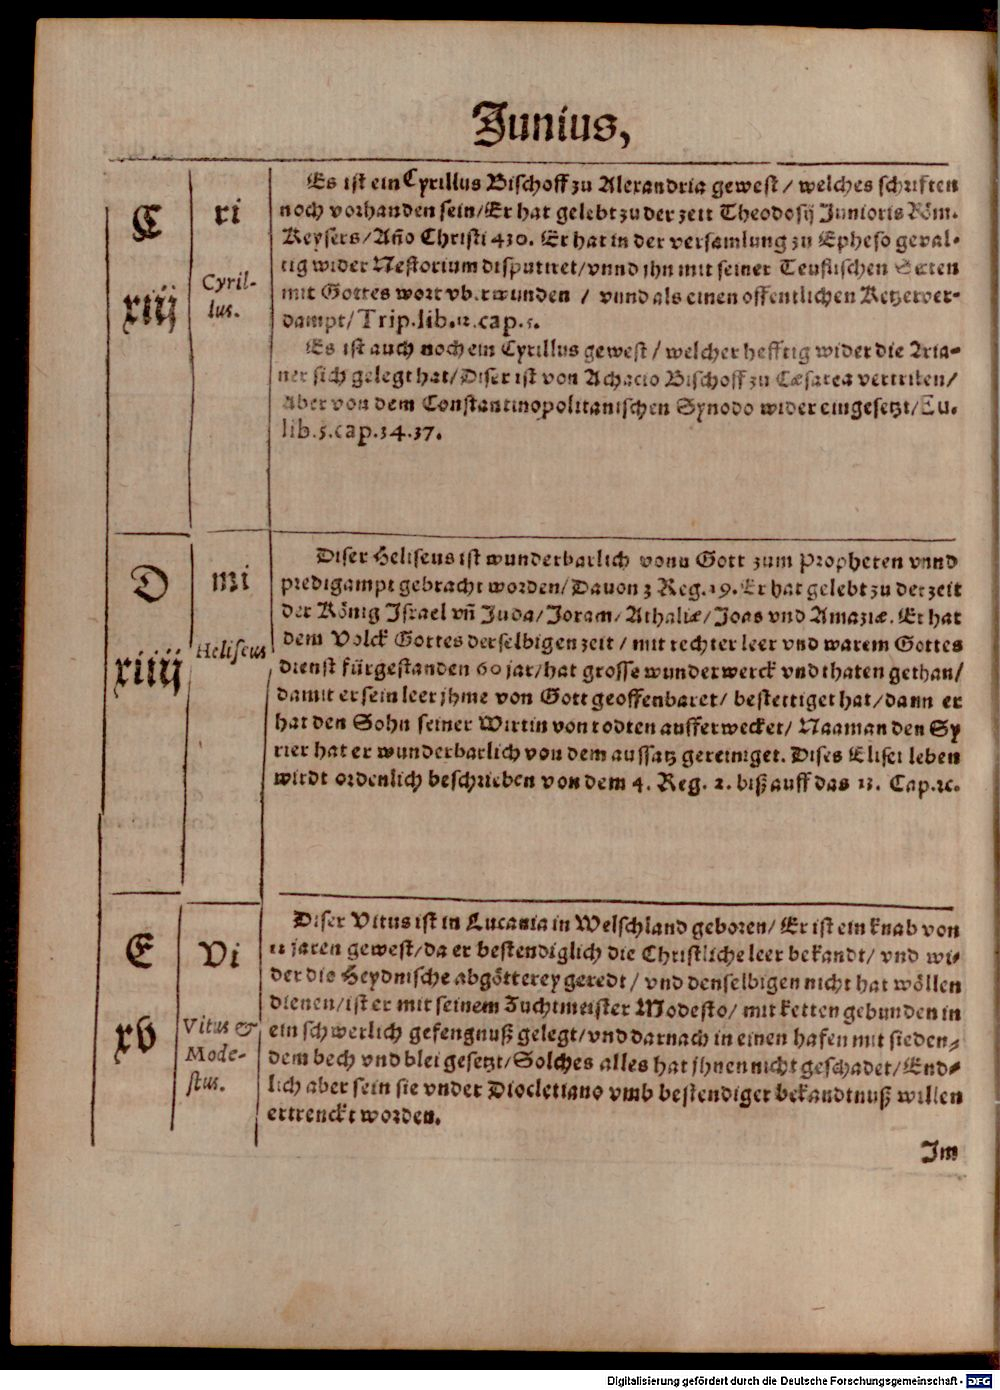 Junius,
C
xiij
ri
Cyril-
lus.
Es ist ein Cyrillus Bischoff zu Alexandria gewest / welches schriften
noch vorhanden sein/Er hat gelebt zu der zeit Theodosij Junioris Röm.
Keysers/Año Christi 430. Er hat in der versamlung zu Epheso geval-
tig wider Nestorium disputiret/vnnd jhn mit seiner Teuflischen Secten
mit Gottes wort vberwunden / vnnd als einen offentlichen Ketzer ver-
dampt/Trip.lib.12.cap.5.
Es ist auch noch ein Cyrillus gewest / welcher hefftig wider die Aria-
ner sich gelegt hat/Diser ist von Achacio Bischoff zu Cæsarea vertriben/
Aber von dem Constantinopolitanischen Synodo wider eingesetzt/Eu.
lib.5.cap.34.37.
D
xiiij
mi
Heliseus
Diser Heliseus ist wunderbarlich vonn Gott zum Propheten vnnd
predigampt gebracht worden/Dauon 3 Reg.19.Er hat gelebt zu der zeit
der König Israel vñ Juda/Joram/Athaliæ/Joas vnd Amaziæ. Er hat
dem Volck Gottes derselbigen zeit / mit rechter leer vnd warem Gottes
dienst fürgestanden 60 jar/hat grosse wunderwerck vnd thaten gethan/
damit er sein leer jhme von Gott geoffenbaret/ bestettiget hat/dann er
hat den Sohn seiner Wirtin von todten aufferwecket/ Naaman den Sy
rier hat er wunderbarlich von dem aussatz gereiniget. Dises Elisei leben
wirdt ordenlich beschrieben von dem 4. Reg. 2. biß auff das 13. Cap.ꝛc.
E
xv
Vi
Vitus &
Mode-
stus.
Diser Vitus ist in Lucania in Welschland geboren/ Er ist ein knab von
12 jaren gewest/da er bestendiglich die Christliche leer bekandt/ vnd wi-
der die Heydnische abgötterey geredt / vnd denselbigen nicht hat wöllen
dienen/ist er mit seinem Zuchtmeister Modesto/ mit ketten gebunden in
ein schwerlich gefengnuß gelegt/vnd darnach in einen hafen mit sieden-
dem bech vnd blei gesetzt/Solches alles hat jhnen nicht geschadet/End-
lich aber sein sie vnder Diocletiano vmb bestendiger bekandtnuß willen
ertrenckt worden.
Im
Digitalisierung gefördert durch die Deutsche Forschungsgemeinschaft - DFG